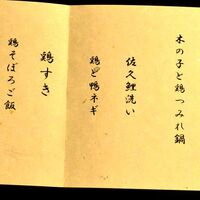 木の子と鶏つみれ鍋
佐久鯉洗い
鶏と鴨ネギ
鶏すき
鶏そぼろご飯